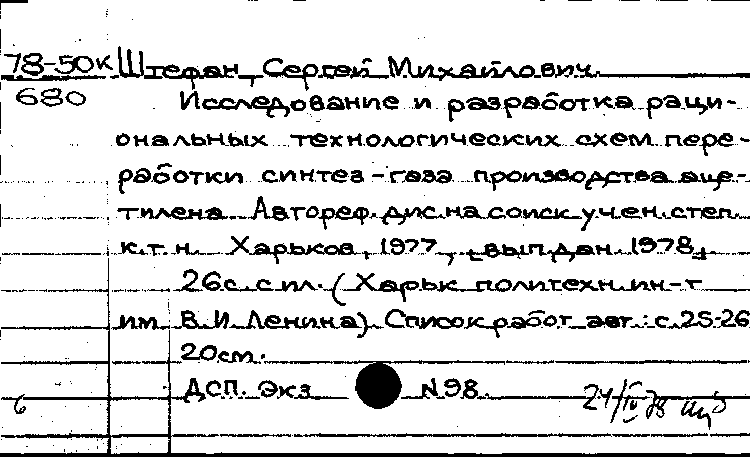 78-50к Штефан, Сергей Михайлович.
680 Исследование и разработка раци-
ональных технологических схем пере-
работки синтез-газа производства аце-
тилена. Автореф. дис. на соиск. учен. степ.
к.т.н. Харьков, 1977, [вып. дан. 1978]
26с. с ил. (Харьк. политехн. ин-т
им. В.И. Ленина). Список работ авт.: с.25-26
20см.
ДСП. Экз. N98.
6 24/IV 78